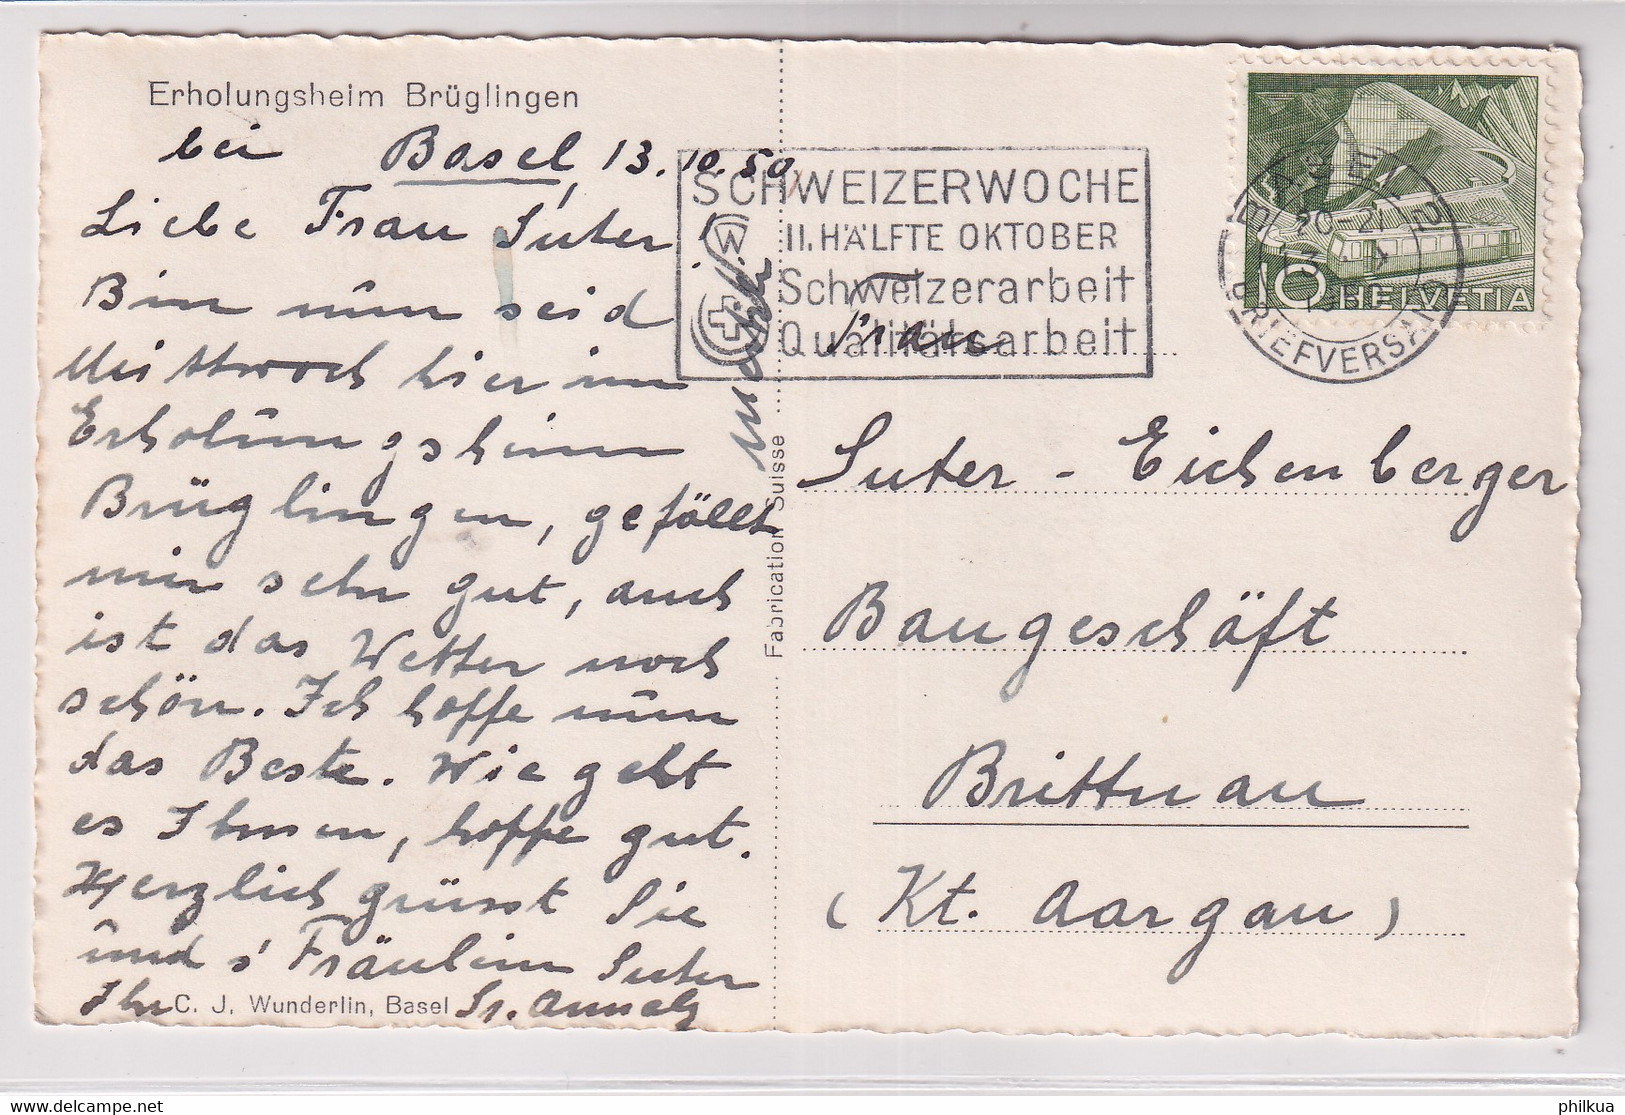 Erholungsheim Brüglingen
bei Basel, 13.10.50
Liebe Frau Suter!
Bin nun seid
Mittwoch hier im
Erholungsheim
Brüglingen, gefällt
mir sehr gut, auch
ist das Wetter noch
schön. Ich hoffe nun
das Beste. Wie geht
es Ihnen, hoffe gut.
Herzlich grüsst Sie
und s' Fräulein Suter
Ihr Sr.
C. J. Wunderlin, Basel
Fabrication Suisse
SCHWEIZERWOCHE
II. HÄLFTE OKTOBER
Schweizerarbeit
Qualitätsarbeit
W
10 HELVETIA
BRIEFVERSAND
Frau
Suter-Eichenberger
Baugeschäft
Brittnau
(Kt. Aargau)
philkua
www.delcampe.net